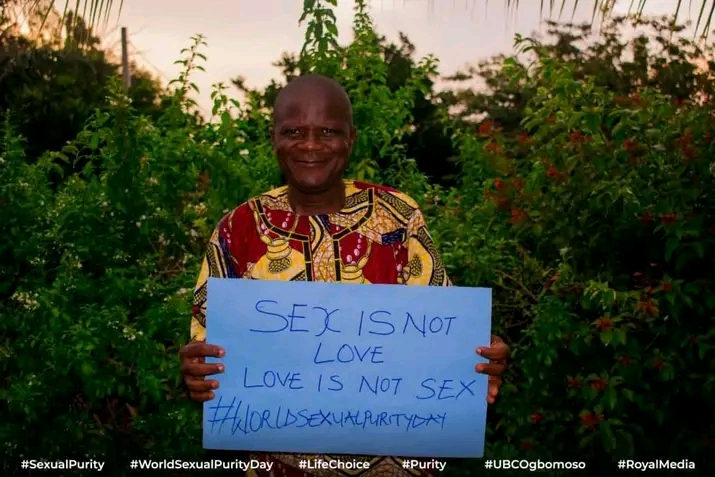 SEX IS NOT
LOVE
LOVE IS NOT SEX
#WORLDSEXUALPURITYDAY
#SexualPurity #WorldSexualPurityDay #LifeChoice #Purity #UBCOgbomoso #RoyalMedia